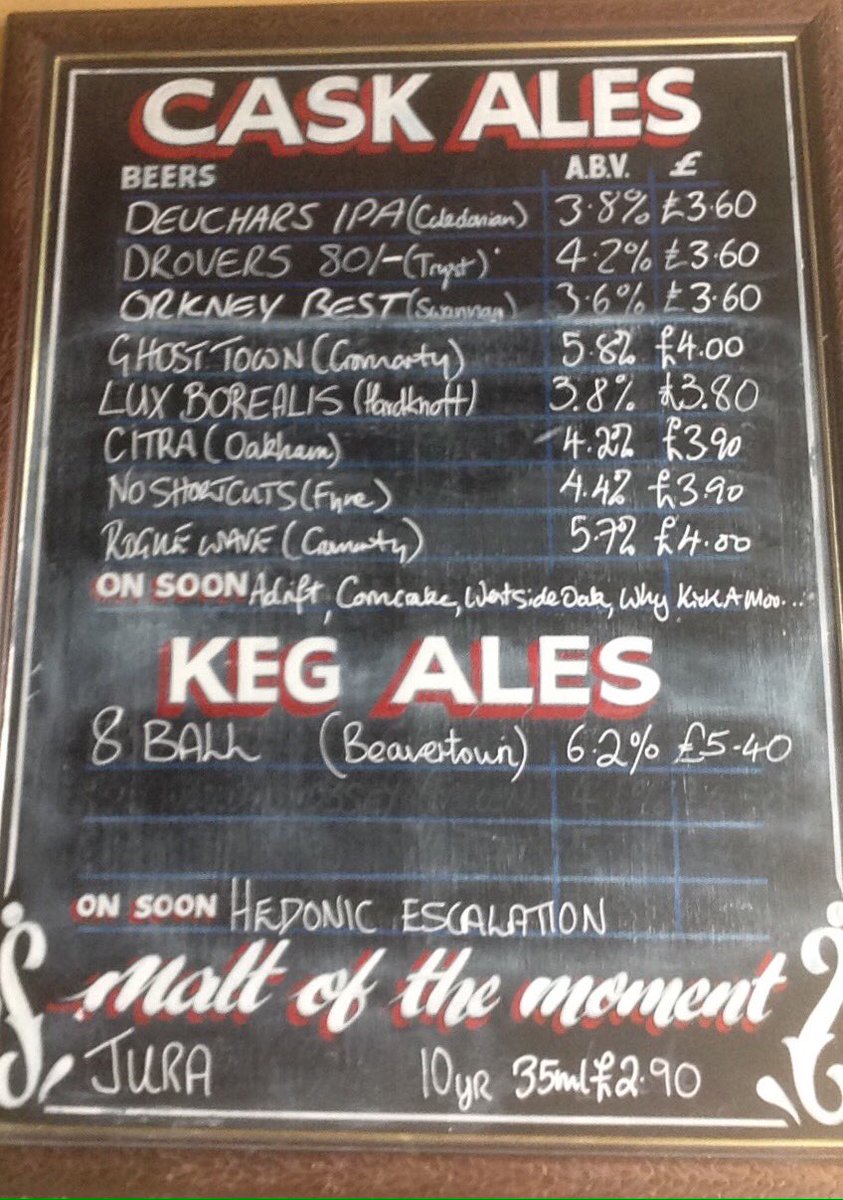 CASK ALES
BEERS A.B.V. £
DEUCHARS IPA (Caledonian) 3.8% £3.60
DROVERS 80/- (Tryst) 4.2% £3.60
ORKNEY BEST (Swannay) 3.6% £3.60
GHOST TOWN (Cromarty) 5.8% £4.00
LUX BOREALIS (Hardknott) 3.8% £3.80
CITRA (Oakham) 4.2% £3.90
NO SHORTCUTS (Fyne) 4.4% £3.90
ROGUE WAVE (Cromarty) 5.7% £4.00
ON SOON Adrift, Corncake, WestsideOak, Why Kick A Moo...
KEG ALES
8 BALL (Beavertown) 6.2% £5.40
ON SOON HEDONIC ESCALATION
Malt of the moment
JURA 10yR 35ml £2.90